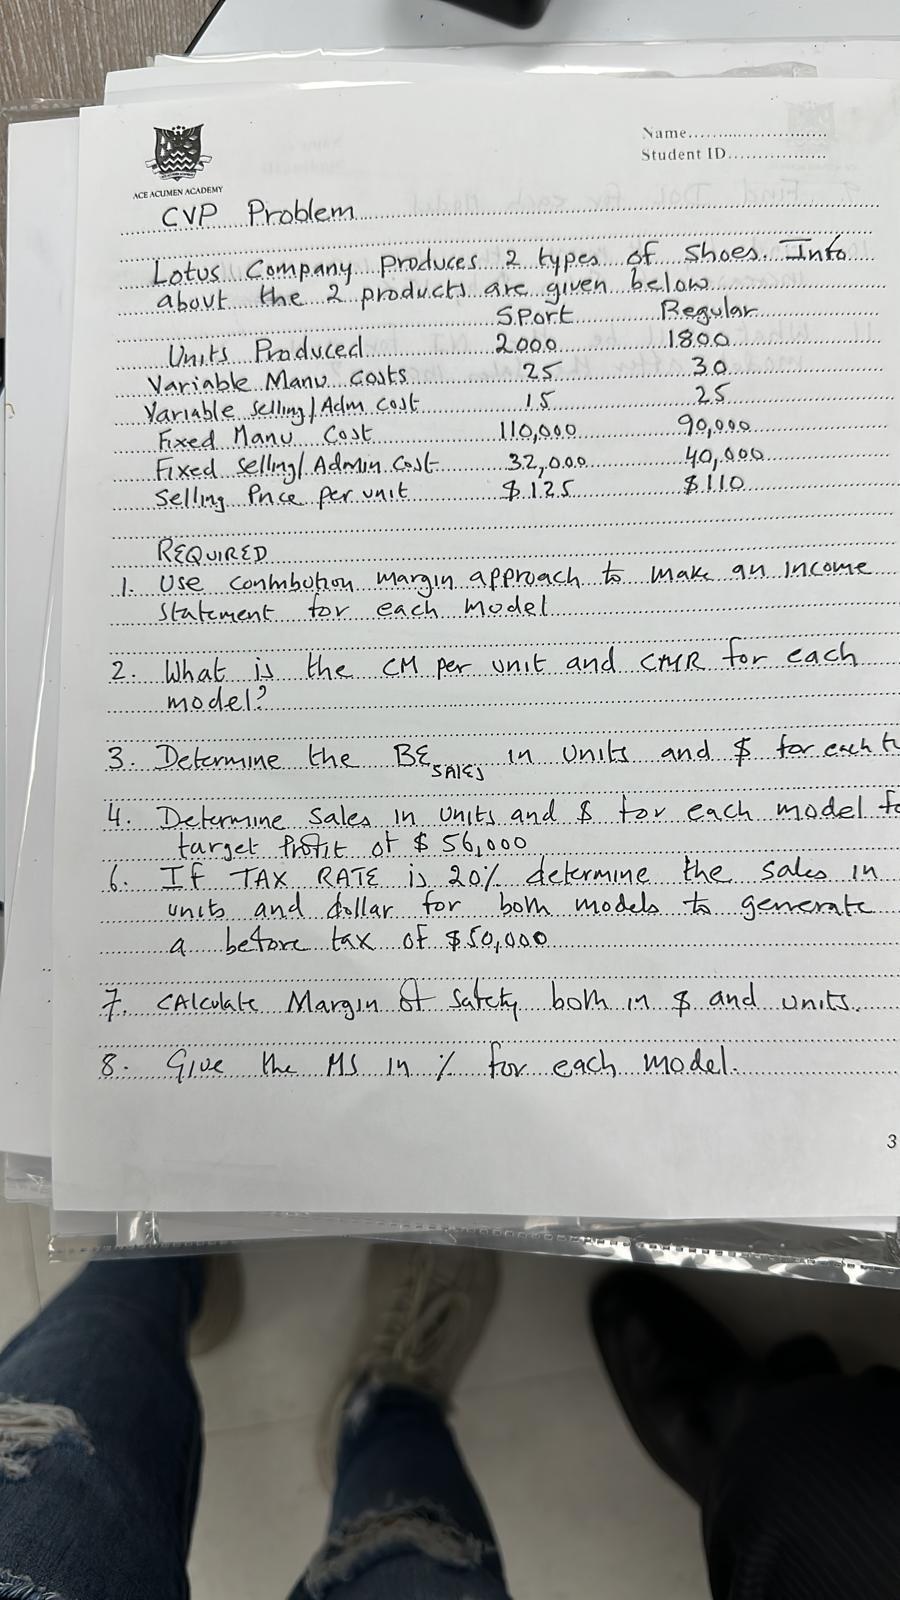 Name..........................
Student ID..................
ACE ACUMEN ACADEMY
CVP Problem
Lotus Company Produces 2 types of shoes. Info
about the 2 products are given below
SPort Regular
Units Produced 2000 1800
Variable Manu costs 25 30
Variable Selling/Adm cost 15 25
Fixed Manu Cost 110,000 90,000
Fixed Selling/Admin Cost 32,000 40,000
Selling Price per unit $125 $110
REQUIRED
1. Use contribution margin approach to make an income
statement for each model
2. What is the CM per unit and CMR for each
model?
3. Determine the BE SALES in units and $ for each
4. Determine Sales in units and $ for each model
target Profit of $56,000
6. If TAX RATE is 20% determine the sales in
units and dollar for both models to generate
a before tax of $50,000
7. CAlculate Margin of Safety both in $ and units.
8. Give the MS in % for each model.
3